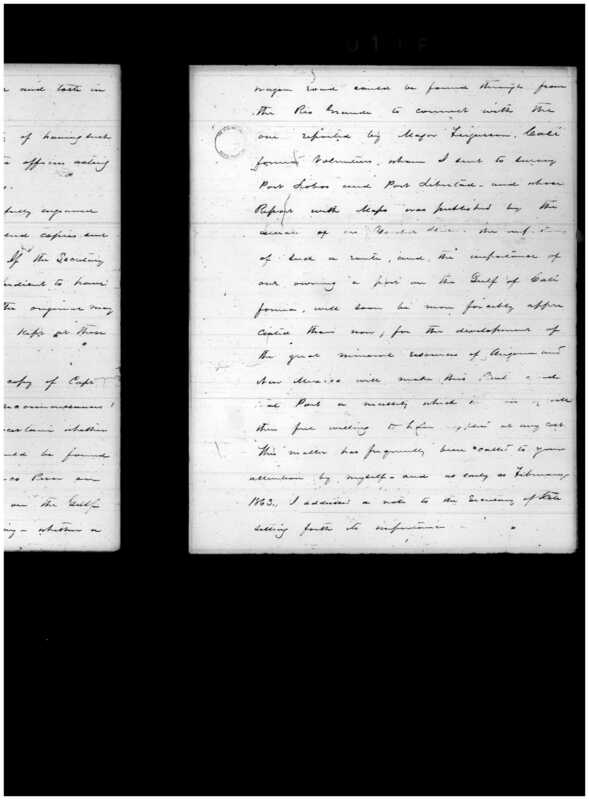 and taste in
of having such
officers acting
fully engrossed
and copies sent
If the Secretary
expedient to have
the original may
kept at those
copy of Capt
reconnoissances
ascertain whether
could be found
River on
on the Gulf
whether a
wagon road could be found through from
the Rio Grande to connect with the
one reported by Major Fergusson, Cali
fornia Volunteers, whom I sent to survey
Port Lobos and Port Libertad - and whose
Report with Maps was published by the
of such a route, and the importance of
our owning a port on the Gulf of Cali
fornia, will soon be more forcibly appre
ciated than now, for the development of
the great mineral resources of Arizona and
New Mexico will make this
Port a necessity which
then feel willing to at any cost
This matter has frequently been called to your
attention by myself - and as early as February
1863, I addressed a note to the Secretary of State
setting forth its importance